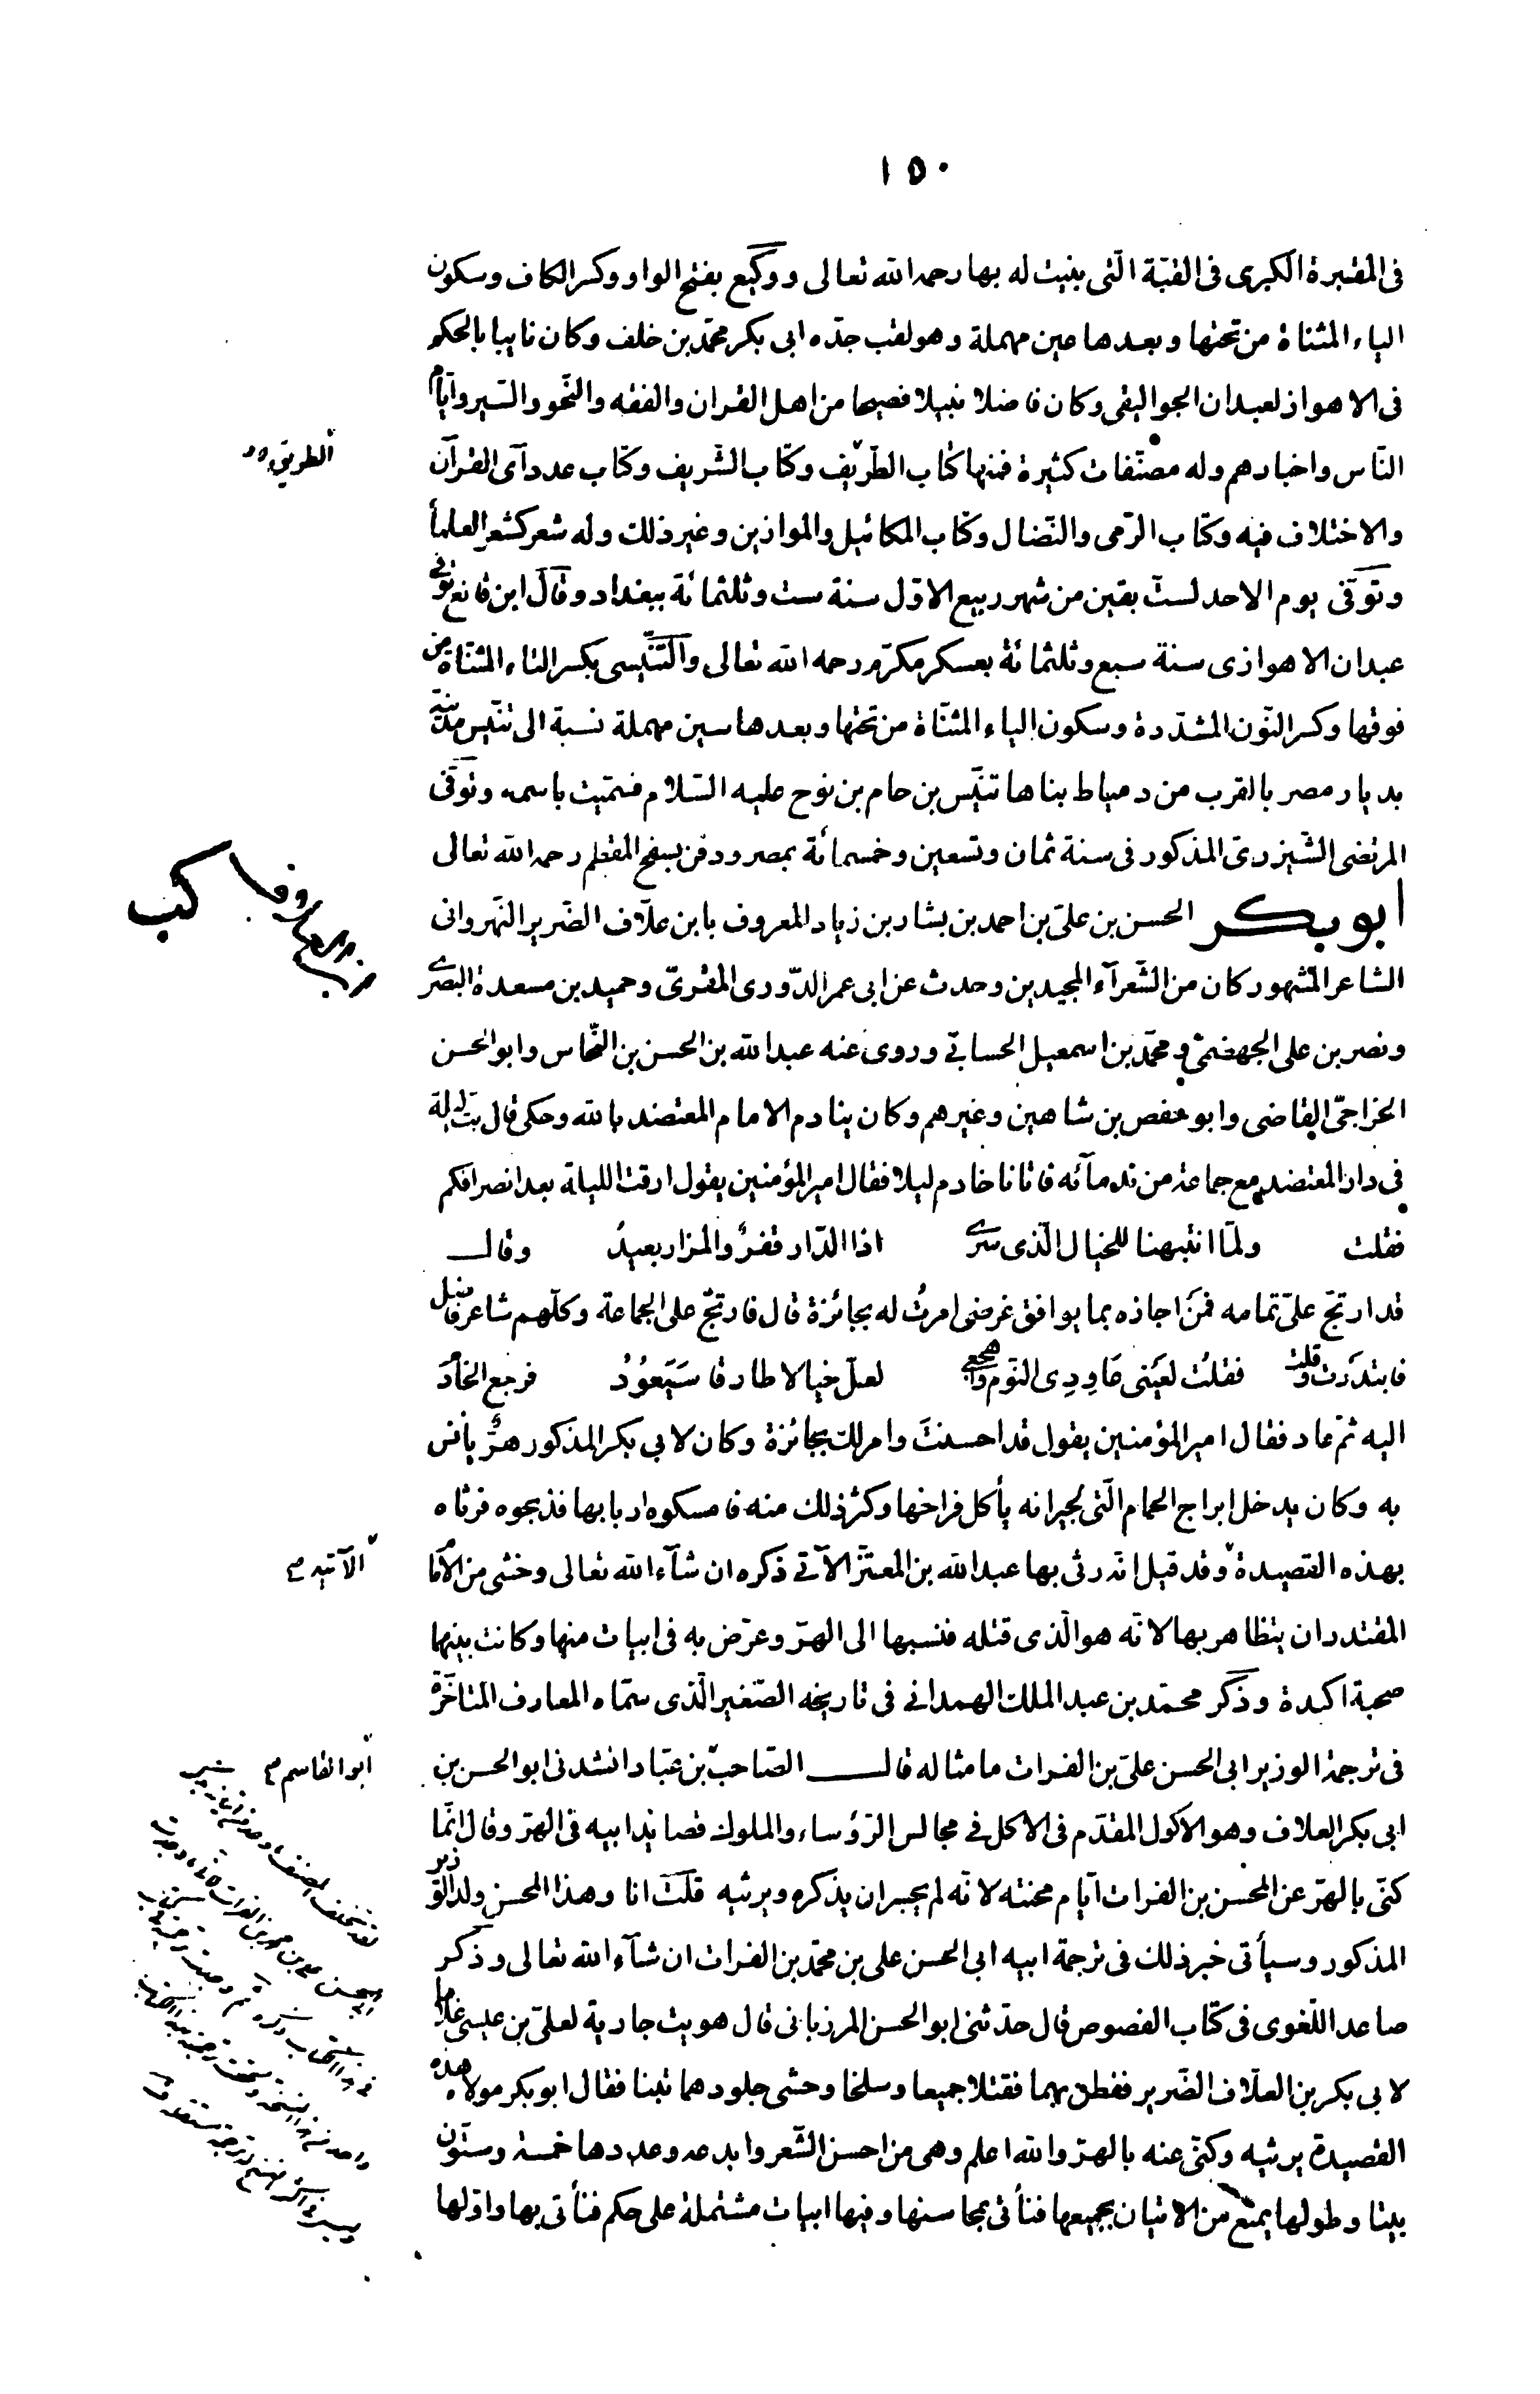 ١٥٠
فى المقبرة الكبرى فى القبّة الّتى بنيت له بها رحمه الله تعالى ووكيع بفتح الواو وكسر الكاف وسكون
الياء المثناة من تحتها وبعدها عين مهملة وهو لقب جدّه ابى بكر محمّد بن خلف وكان نايبا بالحكم
فى الاهواز لعبدان الجواليقى وكان فاضلا نبيلا فصيحا من اهل القران والفقه والنّحو والسّير وآيّام
النّاس واخبارهم وله مصنّفات كثيرة فمنها كتاب الطّريف وكتاب الشّريف وكتاب عدد آى القرآن
الطريق
والاختلاف فيه وكتاب الرّمى والنّضال وكتاب المكائيل والموازين وغير ذلك وله شعر كشعر العلمآ
وتوّفى يوم الاحد لستّ بقين من شهر ربيع الاوّل سنة ست وثلثمائة ببغداد وقال ابن قانع توفى
عبدان الاهوازى سنة سبع وثلثمائة بعسكر مكرّم رحمه الله تعالى والتّنّيسى بكسر التاء المثنّاة من
فوقها وكسر النّون المشدّدة وسكون الياء المثنّاة من تحتها وبعدها سين مهملة نسبة الى تنّيس مدينة
بديار مصر بالقرب من دمياط بناها تنّيس بن حام بن نوح عليه السّلام فسمّيت باسمه وتوّفى
المرتضى الشّيزرىّ المذكور فى سنة ثمان وتسعين وخمسمائة بمصر ودفن بسفح المقطم رحمه الله تعالى
أبو بكر الحسن بن علىّ بن احمد بن بشار بن زياد المعروف بابن علّاف الضّرير النّهروانى
الشاعر المشهور كان من الشّعرآء المجيدين وحدث عن ابى عمر الدّورى المقرىّ وحميد بن مسعدة البصرى
ونصر بن على الجهضمىّ ومحمّد بن اسمعيل الحسانى وروى عنه عبد الله بن الحسن بن النّحاس وابو الحسن
الخراجىّ القاضى وابو حفص بن شاهين وغيرهم وكان ينادم الامام المعتضد بالله وحكى قال بتّ ليلة
فى دار المعتضد مع جماعة من ندمآئه فاتانا خادم ليلا فقال امير المؤمنين يقول ارقت الليلة بعد انصرافكم
فقلت ولمّا انتبهنا للخيال الّذى سرى اذا الدّار قفرٌ والمزار بعيدُ وقال
قد ارتجّ علىّ تمامه فمن اجازه بما يوافق غرضى امرتُ له بجائزة قال فارتجّ على الجماعة وكلّهم شاعر فاضل
فابتدَرت وقلت فقلتُ لعَينى عَاودى النّوم واهجعى لعلّ خيالا طارقا سَيَعُوْدُ فرجع الخادم
اليه ثمّ عاد فقال امير المؤمنين يقول قد احسنتَ وامر لك بجائزة وكان لابى بكر المذكور هرٌّ يأنس
به وكان يدخل ابراج الحمام الّتى لجيرانه يأكل فراخها وكثر ذلك منه فامسكوه اربابها فذبحوه فرثاه
بهذه القصيدة وقد قيل انّه رثى بها عبد الله بن المعتزّ الآتى ذكره ان شآء الله تعالى وخشى من الامام
الآتيه
المقتدر ان يتظاهر بها لانّه هو الّذى قتله فنسبها الى الهرّ وعرّض به فى ابيات منها وكانت بينهما
صحبة اكيدة وذكر محمّد بن عبد الملك الهمدانى فى تاريخه الصّغير الّذى سمّاه المعارف المتأخّرة
فى ترجمة الوزير ابى الحسن علىّ بن الفرات ما مثاله قال الصّاحب بن عبّاد انشدنى ابو الحسن بن
ابو القاسم
ابى بكر العلاف وهو الاكول المقدّم فى الاكل فى مجالس الرّؤساء والملوك قصائد ابيه فى الهرّ وقال انّما
كنّى بالهرّ عن المحسن بن الفرات آيّام محنته لانّه لم يجسر ان يذكره ويرثيه قلت انا وهذا المحسن ولد الوزير
المذكور وسيأتى خبر ذلك فى ترجمة ابيه ابى الحسن على بن محمّد بن الفرات ان شآء الله تعالى وذكر
صاعد اللّغوى فى كتاب الفصوص قال حدّثنى ابو الحسن المرزبانى قال هويت جارية لعلىّ بن عيسى غلاما
لابى بكر بن العلّاف الضّرير ففطن بهما فقتلا جميعا وسلخا وحشى جلودهما تبنا فقال ابو بكر مولاه هذه
القصيدة يرثيه وكنّى عنه بالهرّ والله اعلم وهى من احسن الشّعر وابدعه وعددها خمسة وستّون
بيتا وطولها يمنع من الاتيان بجميعها فنأتى بمحاسنها وفيها ابيات مشتملة على حكم فنأتى بها واوّلها